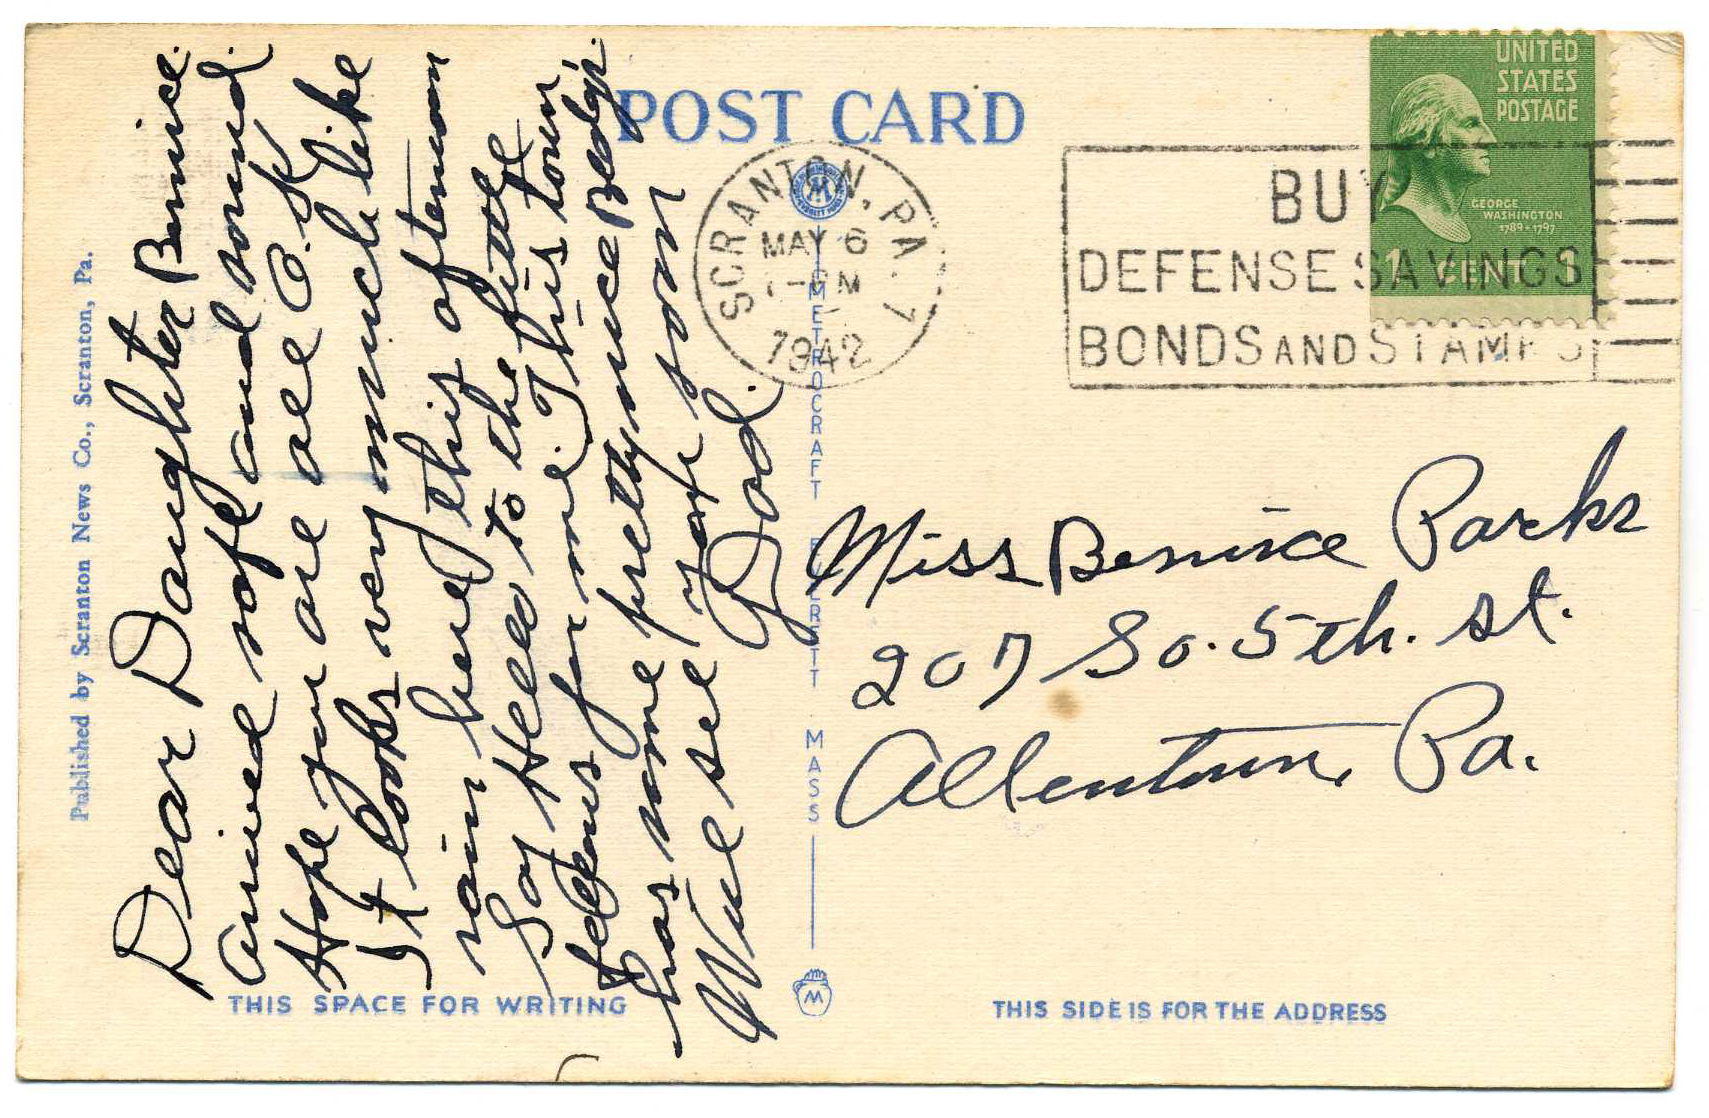 POST CARD
UNITED
STATES
POSTAGE
GEORGE
WASHINGTON
1789-1797
1 CENT 1
SCRANTON, PA. 1
MAY 6
PM
1942
BUY
DEFENSE SAVINGS
BONDS AND STAMPS
Published by Scranton News Co., Scranton, Pa.
Dear Daughter Bernice.
Arrived safe and sound.
Hope you are all O.K.
It looks very much like
rain here this afternoon
Say Hello to the little
fellows for me. This town
has some pretty nice Bldgs.
Will see you soon
Dad.
METROCRAFT EVERETT MASS
M
Miss Bernice Parks
207 So. 5th. St.
Allentown, Pa.
THIS SPACE FOR WRITING
THIS SIDE IS FOR THE ADDRESS